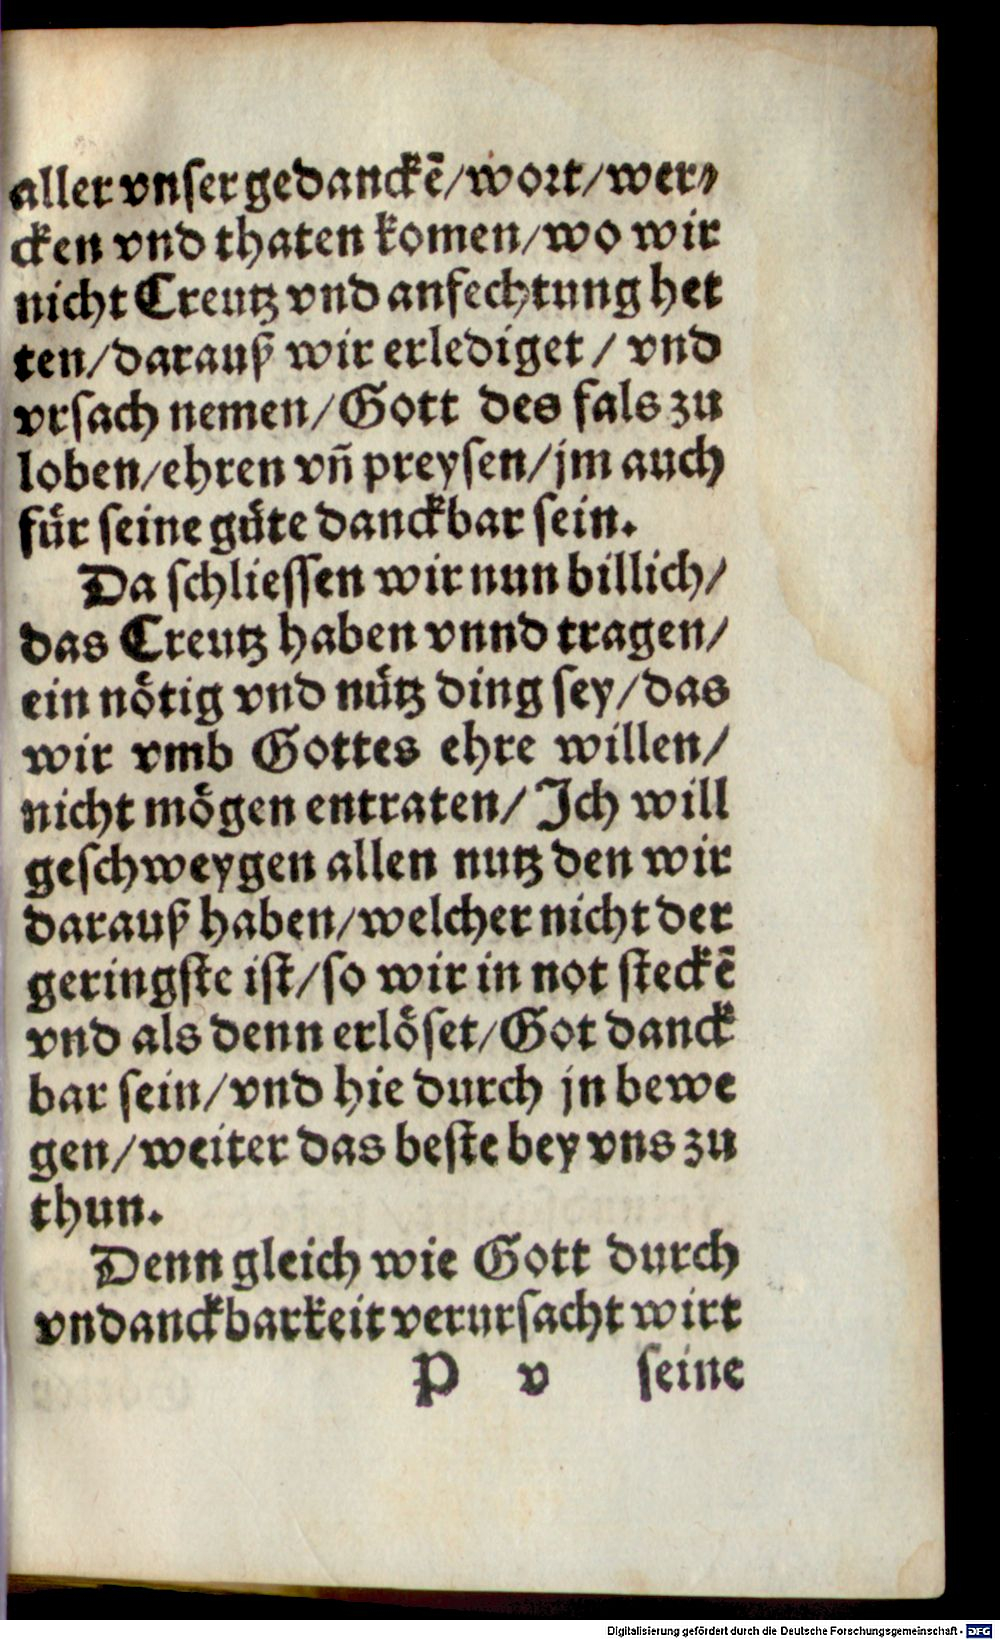 aller vnser gedanckē/wort/wer⸗
cken vnd thaten komen/wo wir
nicht Creutz vnd anfechtung het
ten/darauß wir erlediget / vnd
vrsach nemen/Gott des fals zu
loben/ehren vñ preysen/jm auch
für seine güte danckbar sein.
Da schliessen wir nun billich/
das Creutz haben vnnd tragen/
ein nötig vnd nütz ding sey/das
wir vmb Gottes ehre willen/
nicht mögen entraten/ Ich will
geschweygen allen nutz den wir
darauß haben/welcher nicht der
geringste ist/so wir in not steckē
vnd als denn erlöset/Got danck
bar sein/vnd hie durch jn bewe
gen/weiter das beste bey vns zu
thun.
Denn gleich wie Gott durch
vndanckbarkeit verursacht wirt
P v seine
Digitalisierung gefördert durch die Deutsche Forschungsgemeinschaft - DFG